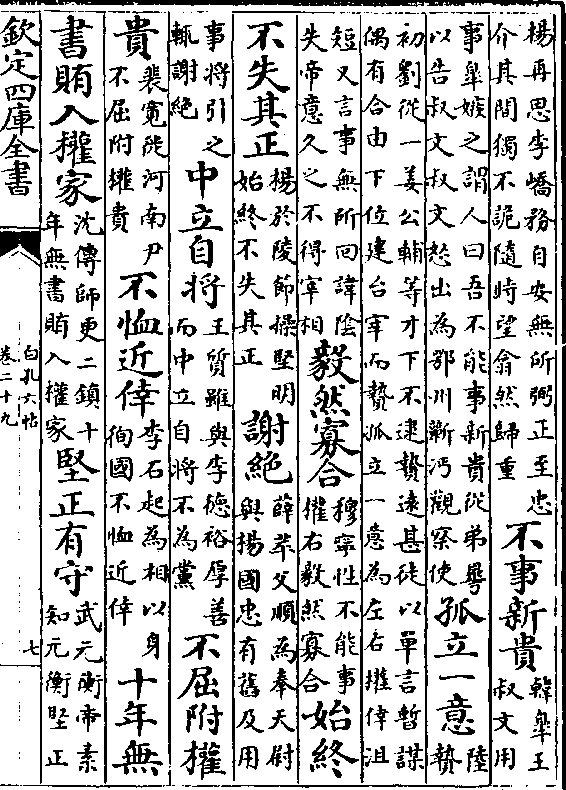 楊再思李嶠務自安無所弼正至忠
介其間獨不詭隨時望翕然歸重
不事新貴
韓臯王
叔文用
事臯嫉之謂人曰吾不能事新貴從弟曅
以告叔文叔文怒出為鄂州蘄沔觀察使
孤立一意
陸
贄
初劉從一姜公輔等才下不逮贄遠甚徒以單言暫謀
偶有合由下位建台宰而贄孤立一意為左右權倖沮
短又言事無所回諱陰
失帝意久之不得宰相
毅然寡合
穆寧性不能事
權右毅然寡合
始終
不失其正
楊於陵節操堅明
始終不失其正
謝絶
薛萃父順為奉天尉
與楊國忠有舊及用
事將引之
輒謝絶
中立自將
王質雖與李德裕厚善
而中立自將不為黨
不屈附權
貴
裴寛徙河南尹
不屈附權貴
不恤近倖
李石起為相以身
徇國不恤近倖
十年無
書賄入權家
沈傳師更二鎮十
年無書賄入權家
堅正有守
武元衡帝素
知元衡堅正
欽定四庫全書
白孔六帖
卷二十九
七